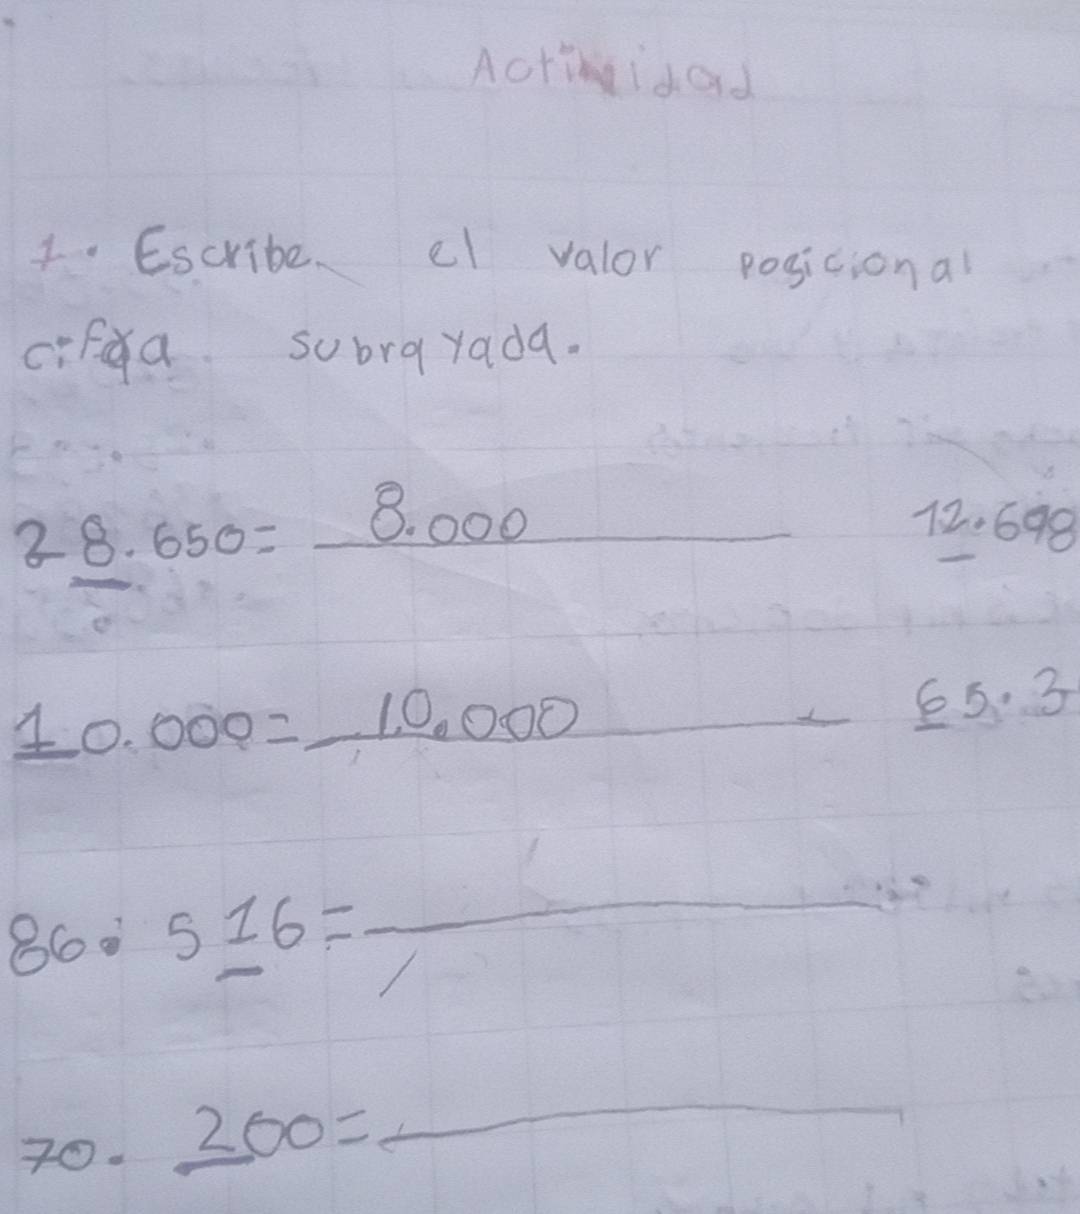 Actividad
1. Escribe el valor posicional
cifra subrayada.
28.650= 8.000 12.698
10.000= 10.000 65.3
86. 516=
70. 200=